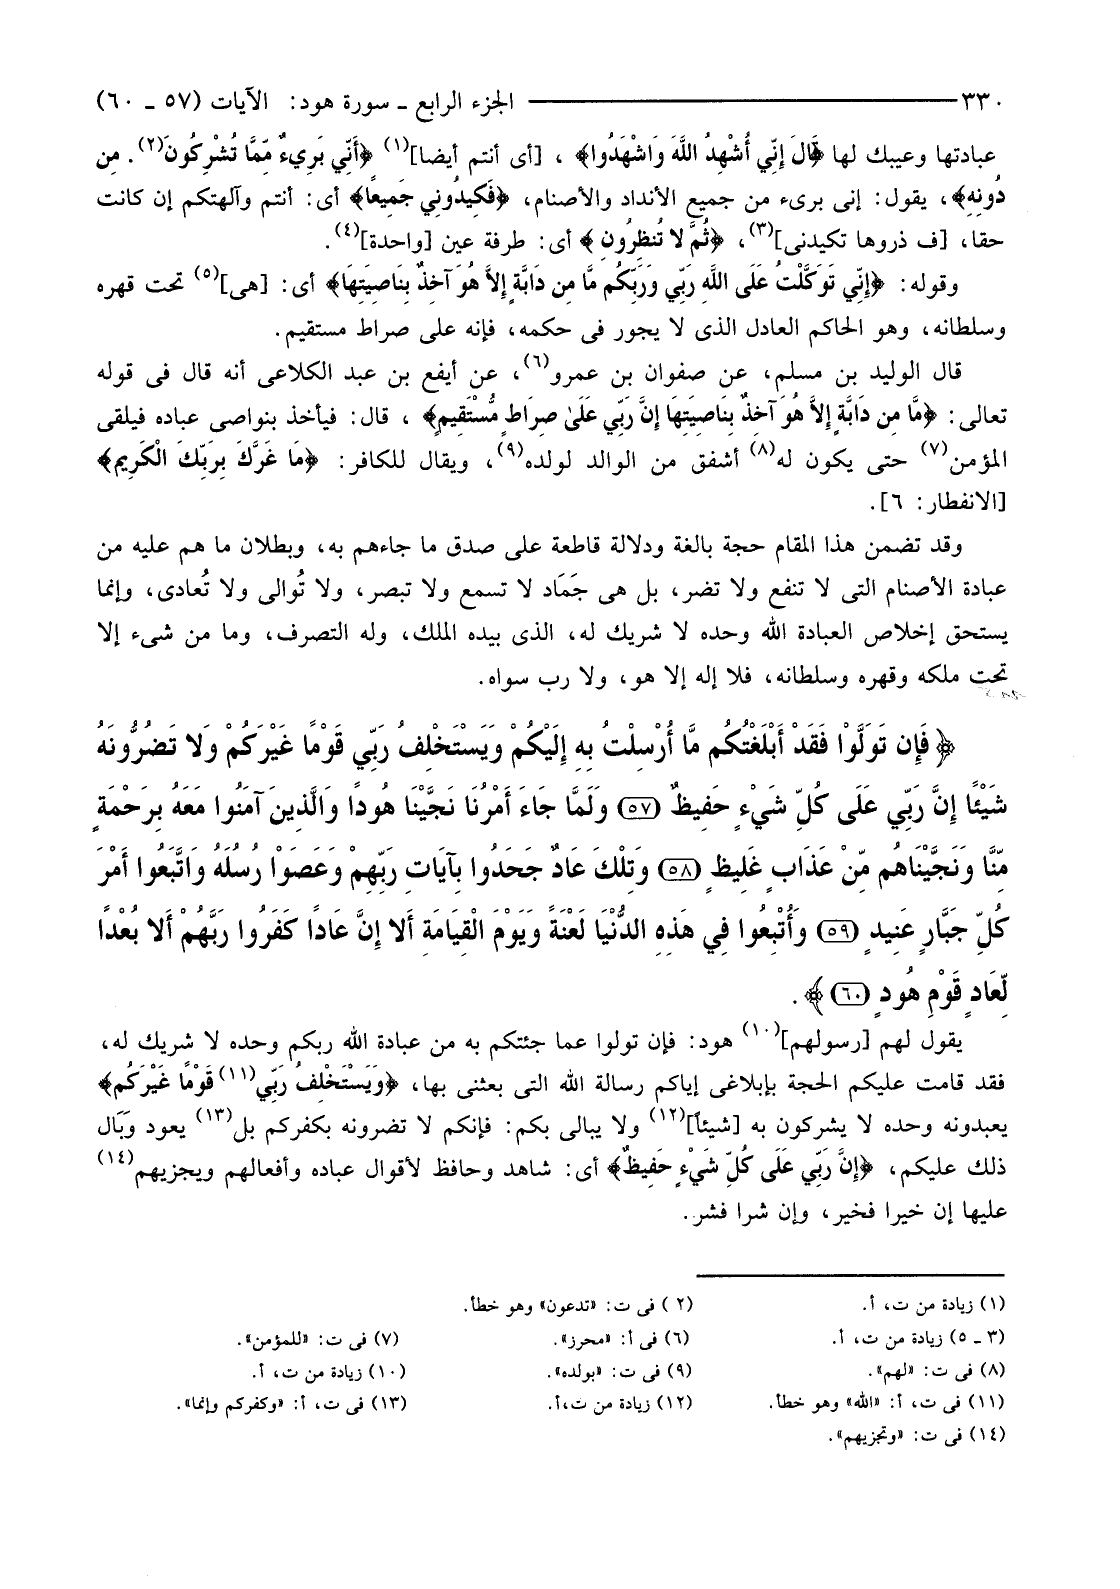 ٣٣٠ ـــــــــــــــــــــــ الجزء الرابع ـ سورة هود: الآيات (٥٧ ـ ٦٠)
عبادتها وعيبك لها ﴿قَالَ إِنِّي أُشْهِدُ اللَّهَ وَاشْهَدُوا﴾ ، [أى أنتم أيضا](١) ﴿أَنِّي بَرِيءٌ مِّمَّا تُشْرِكُونَ(٢). مِن
دُونِهِ﴾، يقول: إنى برىء من جميع الأنداد والأصنام، ﴿فَكِيدُونِي جَمِيعًا﴾ أى: أنتم وآلهتكم إن كانت
حقا، [ف ذروها تكيدنى](٣)، ﴿ثُمَّ لا تُنظِرُونِ ﴾ أى: طرفة عين [واحدة](٤).
وقوله: ﴿إِنِّي تَوَكَّلْتُ عَلَى اللَّهِ رَبِّي وَرَبِّكُم مَّا مِن دَابَّةٍ إِلاَّ هُوَ آخِذٌ بِنَاصِيَتِهَا﴾ أى: [هى](٥) تحت قهره
وسلطانه، وهو الحاكم العادل الذى لا يجور فى حكمه، فإنه على صراط مستقيم.
قال الوليد بن مسلم، عن صفوان بن عمرو(٦)، عن أيفع بن عبد الكلاعى أنه قال فى قوله
تعالى: ﴿مَّا مِن دَابَّةٍ إِلاَّ هُوَ آخِذٌ بِنَاصِيَتِهَا إِنَّ رَبِّي عَلَىٰ صِرَاطٍ مُّسْتَقِيمٍ﴾ ، قال: فيأخذ بنواصى عباده فيلقى
المؤمن(٧) حتى يكون له(٨) أشفق من الوالد لولده(٩)، ويقال للكافر: ﴿مَا غَرَّكَ بِرَبِّكَ الْكَرِيمِ﴾
[الانفطار: ٦].
وقد تضمن هذا المقام حجة بالغة ودلالة قاطعة على صدق ما جاءهم به، وبطلان ما هم عليه من
عبادة الأصنام التى لا تنفع ولا تضر، بل هى جَمَاد لا تسمع ولا تبصر، ولا تُوالى ولا تُعادى، وإنما
يستحق إخلاص العبادة الله وحده لا شريك له، الذى بيده الملك، وله التصرف، وما من شىء إلا
تحت ملكه وقهره وسلطانه، فلا إله إلا هو، ولا رب سواه.
﴿فَإِن تَوَلَّوْا فَقَدْ أَبْلَغْتُكُم مَّا أُرْسِلْتُ بِهِ إِلَيْكُمْ وَيَسْتَخْلِفُ رَبِّي قَوْمًا غَيْرَكُمْ وَلا تَضُرُّونَهُ
شَيْئًا إِنَّ رَبِّي عَلَى كُلِّ شَيْءٍ حَفِيظٌ (٥٧) وَلَمَّا جَاءَ أَمْرُنَا نَجَّيْنَا هُودًا وَالَّذِينَ آمَنُوا مَعَهُ بِرَحْمَةٍ
مِّنَّا وَنَجَّيْنَاهُم مِّنْ عَذَابٍ غَلِيظٍ (٥٨) وَتِلْكَ عَادٌ جَحَدُوا بِآيَاتِ رَبِّهِمْ وَعَصَوْا رُسُلَهُ وَاتَّبَعُوا أَمْرَ
كُلِّ جَبَّارٍ عَنِيدٍ (٥٩) وَأُتْبِعُوا فِي هَذِهِ الدُّنْيَا لَعْنَةً وَيَوْمَ الْقِيَامَةِ أَلا إِنَّ عَادًا كَفَرُوا رَبَّهُمْ أَلا بُعْدًا
لِّعَادٍ قَوْمِ هُودٍ (٦٠)﴾ .
يقول لهم [رسولهم](١٠) هود: فإن تولوا عما جئتكم به من عبادة الله ربكم وحده لا شريك له،
فقد قامت عليكم الحجة بإبلاغى إياكم رسالة الله التى بعثنى بها، ﴿وَيَسْتَخْلِفُ رَبِّي(١١) قَوْمًا غَيْرَكُم﴾
يعبدونه وحده لا يشركون به [شيئاً](١٢) ولا يبالى بكم: فإنكم لا تضرونه بكفركم بل(١٣) يعود وبَال
ذلك عليكم، ﴿إِنَّ رَبِّي عَلَى كُلِّ شَيْءٍ حَفِيظٌ﴾ أى: شاهد وحافظ لأقوال عباده وأفعالهم ويجزيهم(١٤)
عليها إن خيرا فخير، وإن شرا فشر.
(١) زيادة من ت، أ. (٢ ) فى ت: «تدعون» وهو خطأ.
(٣ ـ ٥) زيادة من ت، أ. (٦) فى أ: «محرز». (٧) فى ت: «للمؤمن».
(٨) فى ت: «لهم». (٩) فى ت: «بولده». (١٠) زيادة من ت، أ.
(١١) فى ت، أ: «الله» وهو خطأ. (١٢) زيادة من ت،أ. (١٣) فى ت، أ: «وكفركم وإنما».
(١٤) فى ت: «وتجزيهم».